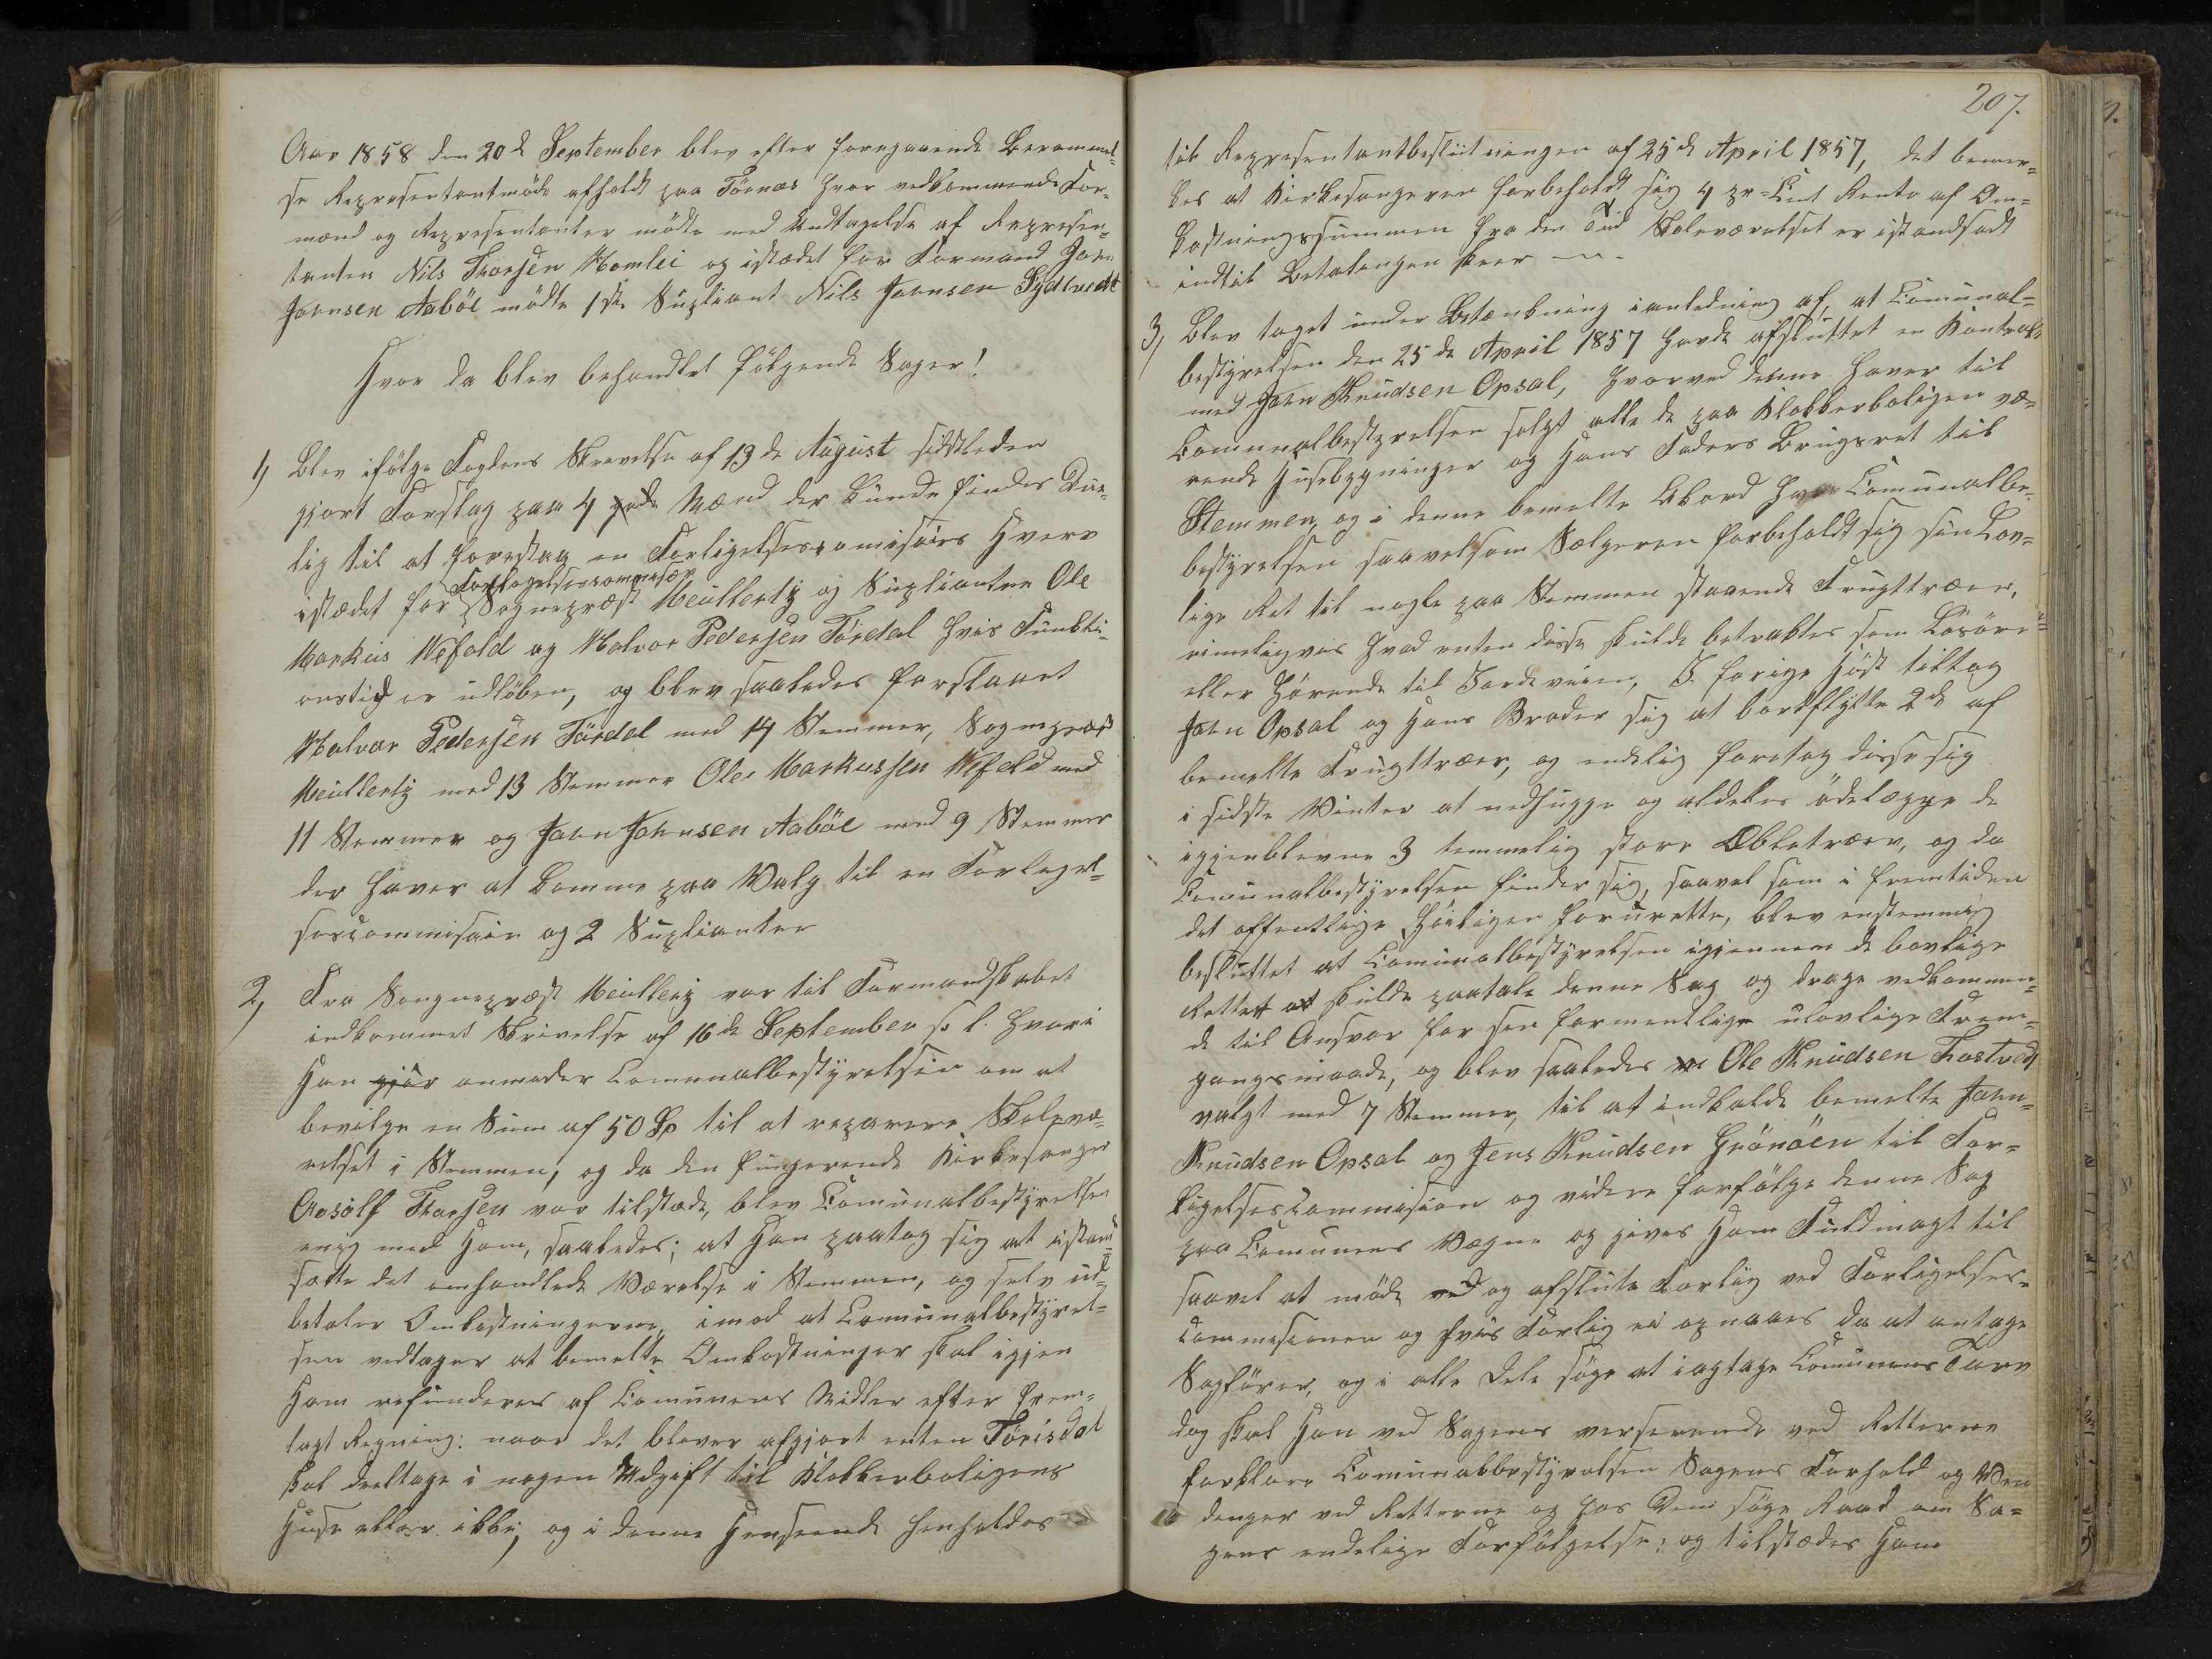 Aar 1858 den 20de September blev efter foregaaende Berammel-
se Repræsentantmöde afholdt paa Törnæs hvor vedkommende For-
mænd og Repræsentanter mödte med Undtagelse af Repræsen-
tanten Nils Thorsen Homlei og istædet for Formand John
Johnsen Aaböe mödte 1ste Supliant Nils Johnsen Sydtvedt
Hvor da blev behandlet fölgende Sager!
1) Blev ifölge Fogdens Skrivelse af 13de August sidstleden
gjort Forslag paa 4 Mænd der kunde findes Due-
lig til at forestaa en Forligelsescomisairs Hverv
Forligelsescommisær
istædet for Sognepræst Meullertz og Suplianten Ole
Markus Wefald og Halvor Pedersen Tördal hvis Funkti-
onstid er udlöben, og blev saaledes forslaaet
Halvor Pedersen Tördal med 14 Stemmer, Sognepræst
Meullertz med 13 Stemmer Ole Markussen Wefald med
11 Stemmer og John Johnsen Aaböe med 9 Stemmer
der haver at komme paa Valg til en Forligel-
sescommisair og 2 Suplianter
2) Fra Sognepræst Meullertz var til Formandskabet
indkommet Skrivelse af 16de September s. l. hvori
Han gjör anmoder Comunalbestyrelsen om at
bevilge en Sum af 50 Sp til at reparere Skolevæ-
relset i Stemmen, og da den fungerende Kirkesanger
Aasolf Thorsen var tilstæde, blev Comunalbestyrelsen
enig med Ham, saaledes; at Han paatog sig at istand-
sætte det omhandlede Værelse i Stemmen, og selv ud-
betaler Omkostningerne, imod at Comunalbestyrel-
sen vedtager at bemelte Omkostninger skal igjen
Ham refunderes af Comunens Midler efter frem-
lagt Regning: naar det bliver afgjort enten Törisdal
skal deeltage i nogen Udgift til Klokkerboligens
Huse eller ikke; og i denne Henseende henholdes
207.
til Repræsentantbeslutningen af 25de April 1857, det bemær-
kes at Kirkesangeren forbeholdt sig 4 pr-Cent Rente af Om-
kostningssummen fra den Tid Skoleværelset er istandsadt
indtil Betalingen skeer
3) Blev taget under Betænkning ianledning af, at Comunal-
bestyrelsen den 25de April 1857 havde afsluttet en Kontrakt
med John Knudsen Opsal, hvorved denne haver til
Comunalbestyrelsen solgt alle de paa Klokkerboligen væ-
rende Husebygninger og Hans Faders Brugsret til
Stemmen, og i denne bemelte Akord hvor Comunalbe-
bestyrelsen saavelsom Sælgeren forbeholdt sig sin Lov-
lige Ret til nogle paa Stemmen staaende Frugttræer,
rimeligvis hvad enten disse skulde betraktes som Lösöre
eller hörende til Jordeveien, I forige Höst tiltog
John Opsal og Hans Broder sig at bortflytte 2de af
bemelte Frugttræer, og endelig foretog disse sig
i sidste Vinter at nedhugge og aldeles ödelægge de
igjenblevne 3 temmelig store Æbletræer, og da
Comunalbestyrelsen finder sig, saavel som i fremtiden
det offentlige forurette, blev enstemmig
besluttet at Comunalbestyrelsen igjennem de lovlige
Retter at skulde paatale denne Sag og drage vedkommen-
de til Ansvar for sin formentlige ulovlige Frem-
gangsmaade, og blev saaledes Ole Knudsen Tvostvedt
valgt med 7 Stemmer, til at indkalde bemelte John-
Knudsen Opsal og Jens Knudsen Grönöen til For-
ligelsescommision og videre forfölge denne Sag
paa Comunens Vegne og gives Ham Fuldmagt til
saavel at möde ved og afslute Forlig ved Forligelses-
commisionen og hvis Forlig ei opnaaes da at antage
Sagförer, og i alle Dele söge at iagtage Comunens Tarv
dog skal Han ved Sagens verserende ved Retterne
forklare Comunalbestyrelsen Sagens Forhold og Ven
denger ved Retterne og hos Dem söge Raad om Sa-
gens endelige Forfölgelse; og tilstædes Ham